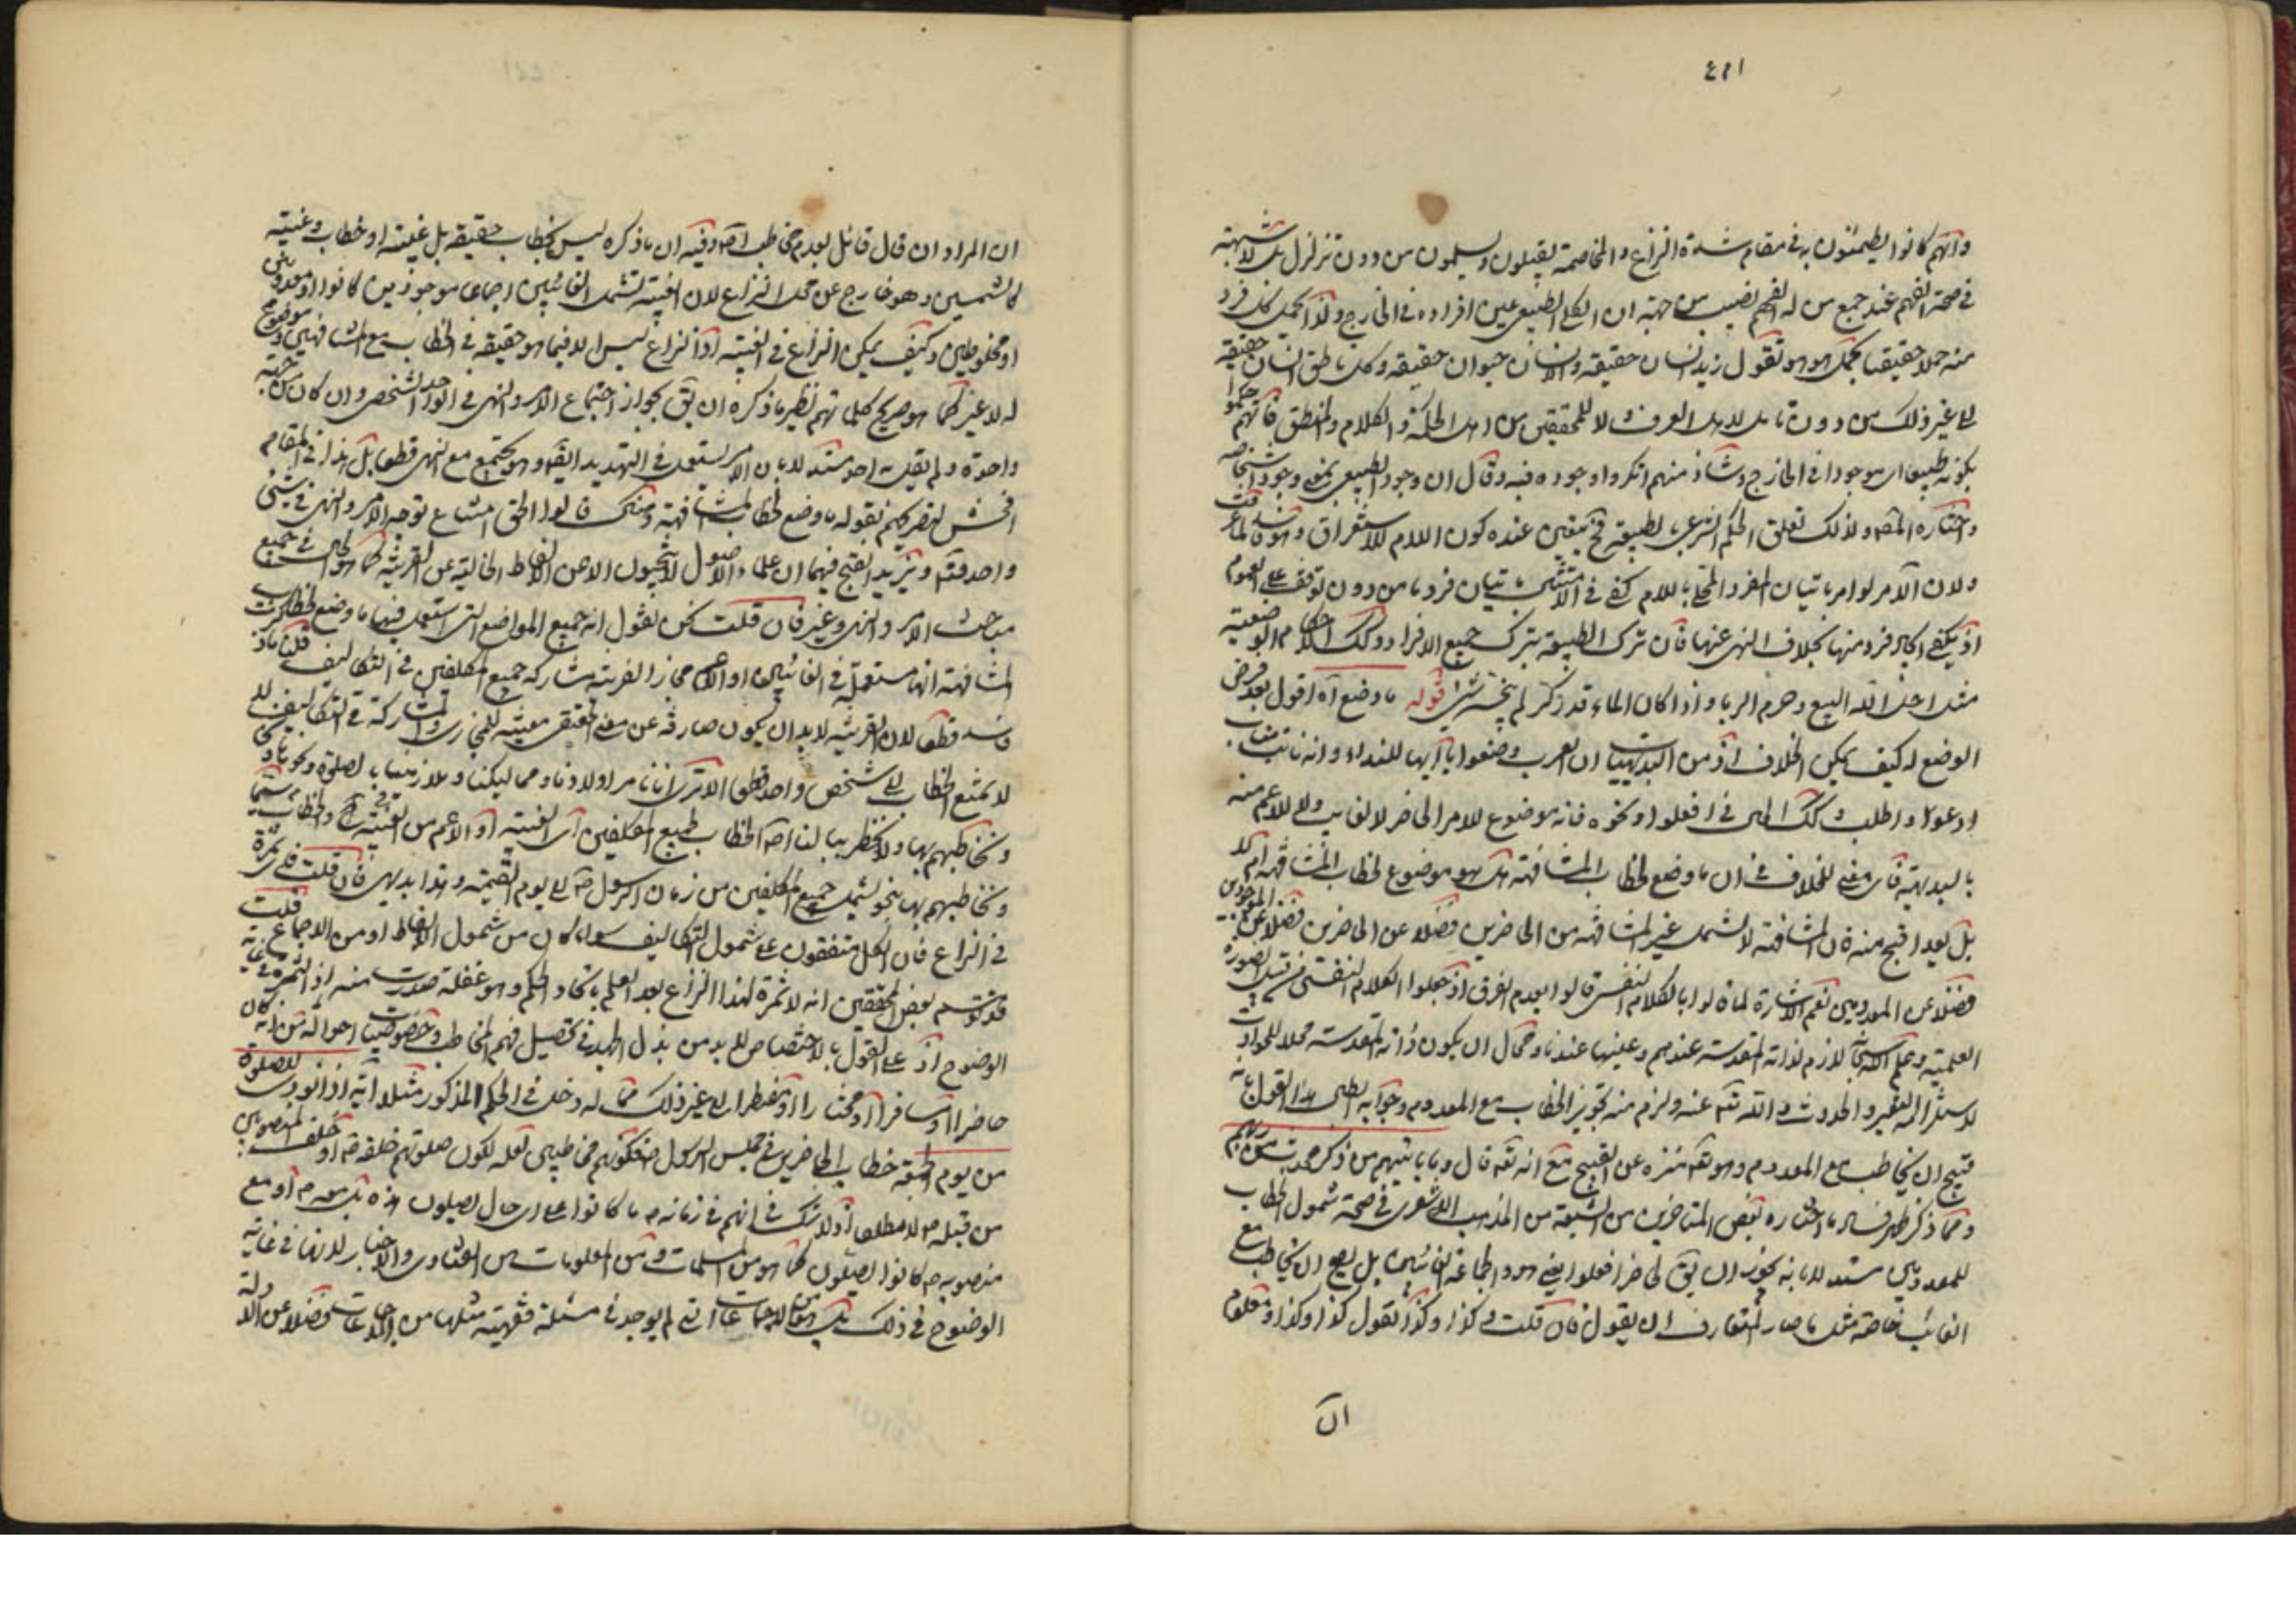 وانهم كانوا يطمئنون به في مقام شدة النزاع والمخاصمة يقبلون ويسلمون من دون تزلزل بل لا شبهة
في صحة الفهم عند جميع من له الفهم نصيب من جهة ان الكلي الطبيعي عين افراده في الخارج ولذا يحمل كل فرد
منه حملا حقيقيا بحمل هو هو تقول زيد انسان حقيقة والانسان حيوان حقيقة وكل ناطق انسان حقيقة
الى غير ذلك من دون تامل لاهل العرف ولا للمحققين من اهل الحكمة والكلام والمنطق فانهم حكموا
بكونه طبيعيا موجودا في الخارج وشاذ منهم انكروا وجوده فيه وقال ان وجود الطبيعي بمعنى وجود اشخاصه
واختاره المصـ ولذلك تعلق الحكم الشرعي بالطبيعة فح يتعين عنده كون اللام للاستغراق وهو فاسد لما عرفت
ولان الآمر لو امر باتيان المفرد المحلى باللام كفى في الامتثال باتيان فرد ما من دون توقف على العموم
اذ يكفي ايجاد فرد منها بخلاف النهي عنها فان ترك الطبيعة بترك جميع الافراد وكذلك احكام الوضعية
مثل احل الله البيع وحرم الربا واذا كان الماء قدر كر لم ينجسه شئ قوله ما وضع آه اقول بعد فرض
الوضع له كيف يمكن الخلاف اذ من البديهيات ان العرب وضعوا يا ايها للنداء وانه نائب مناب
ادعو او اطلب وكذلك الحال في افعلوا ونحوه فانه موضوع للامر الحاضر لا الغايب ولا للاعم منه
بالبديهة فاى معنى للخلاف في ان ما وضع لخطاب المشافهة هل هو موضوع لخطاب المشافهة ام لا
بل يعد اقبح منه فان المشافهة لا تشمل غير المشافهة من الحاضرين فضلا عن الحاضرين فضلا عن الموجودين
فضلا عن المعدومين نعم الاشاعرة لما قالوا بالكلام النفسي قالوا بعدم الفرق اذ جعلوا الكلام النفسي من قبيل الصورة
العلمية وعلم الله تعالى لازم لذاته المقدسة عندهم وعينها عندنا ومحال ان يكون ذاته المقدسة محلا للحوادث
لاستلزام التغير والحدوث والله تعـ عنه ولزم منه تجويز الخطاب مع المعدوم وجوابه بطلان هذا القول بانه
قبيح ان يخاطب مع المعدوم وهو تعـ منزه عن القبيح مع انه تعـ قال وما ياتيهم من ذكر محدث من ربهم
ومما ذكر ظهر فساد ما اختاره بعض المتاخرين من الشيعة من المذهب الاشعري في صحة شمول الخطاب
للمعدومين مستدلا بانه يجوز ان يقـ لحاضر افعلوا يعني هو والجماعة الغائبين بل يصح ان يخاطب مع
الغائب خاصة مثل ما صار المتعارف ان يقول فان قلت كذا وكذا نقول كذا وكذا ومعلوم
ان
ان المراد ان قال قائل بعدم مخاطب اصـ وفيه ان ما ذكره ليس بخطاب حقيقة بل غيبة او خطاب وغيبة
كالشمسين وهو خارج عن محل النزاع لان الغيبة تشمل الغائبين اجماعا موجودين كانوا او معدومين
او مخلوطين وكيف يمكن النزاع في الغيبة اذ النزاع ليس الا فيما هو حقيقة في الخطاب مع المشافهين وموضوع
له لا غير كما هو صريح كلماتهم نظير ما ذكره ان يقـ بجواز اجتماع الامر والنهي في الواحد الشخصي وان كان من جهة
واحدة ولم يقل به احد مستدلا بان الامر يستعمل في التهديد ايضـ وهو يجتمع مع النهي قطعا بل هذا في المقام
افحش لتصريحهم بقوله ما وضع لخطاب المشافهة وهناك قالوا الحق امتناع توجه الامر والنهي في شئ
واحد فتـ ويزيد القبح فيهما ان علماء الاصول لا يبحثون الا عن الالفاظ الخالية عن القرينة كما هو الحال في جميع
مباحث الامر والنهي وغيره فان قلت نحن نقول انه جميع المواضع التي استعمل فيها ما وضع لخطاب
المشافهة انها مستعملة في الغائبين او الاعم مجازا لقرينة مشاركة جميع المكلفين في التكاليف قلت ما ذكرت
فاسد قطعا لان القرينة لا بد ان يكون صارفة عن معنى الحقيقي معينة للمجازي والمشاركة في التكاليف
لا يمنع الخطاب الى شخص واحد قطعا الا ترى انا نامر اولادنا ومماليكنا وملازمينا بالصلوة ونحوها
ونخاطبهم بها ولا يخطر ببالنا اصـ الخطاب لجميع المكلفين اى الغيبة او الاعم من الغيبة والخطاب
ونخاطبهم بها بنحو يشمل جميع المكلفين من زمان الرسول صـ الى يوم القيمة وهذا بديهي فان قلت فاى ثمرة
في النزاع فان الكل متفقون على شمول التكاليف سواء كان من شمول الالفاظ او من الاجماع قلت
قد توهم بعض المحققين انه لا ثمرة لهذا النزاع بعد العلم باتحاد الحكم وهو غفلة صدرت منه اذ الثمرة في غاية
الوضوح اذ على القول بالاختصاص لا بد من بذل الجهد في تحصيل فهم المخاطب وخصوصيات احواله من انه كان
حاضرا او مسافرا او مختارا او مضطرا الى غير ذلك مما له دخل في الحكم المذكور مثلا آية اذا نودي للصلوة
من يوم الجمعة خطاب الى الحاضرين في مجلس الرسول صـ فكونهم مخاطبين لعله لكون صلوتهم خلفه صـ او خلف المنصوبين
من قبله صـ لا مطلقا اذ لا شك في انهم في زمانه صـ ما كانوا على اى حال يصلون هذه بل معه صـ او مع
منصوبه صـ كانوا يصلون كما هو من المسلمات ومن المعلومات من الفتاوى والاخبار لانها في غاية
الوضوح في ذلك بل هو من الاجماعات التي لم يوجد في مسئلة فقهية مثلها من الاجماعات فضلا عن الادلة